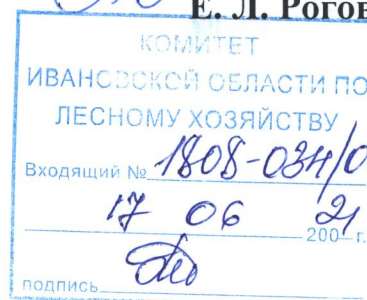 Е. Л. Рогов
КОМИТЕТ
ИВАНОВСКОЙ ОБЛАСТИ ПО
ЛЕСНОМУ ХОЗЯЙСТВУ
Входящий № 1808-034/0
17 06 21 200 г.
подпись